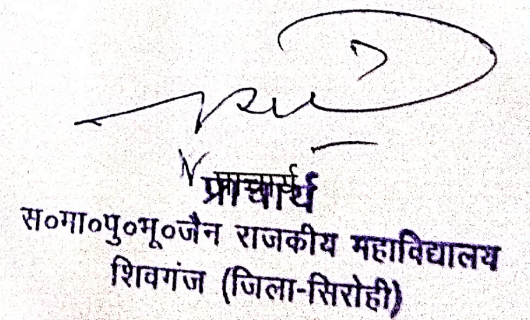 प्राचार्य
स०मा०पु०भू०जैन राजकीय महाविद्यालय
शिवगंज (जिला-सिरोही)